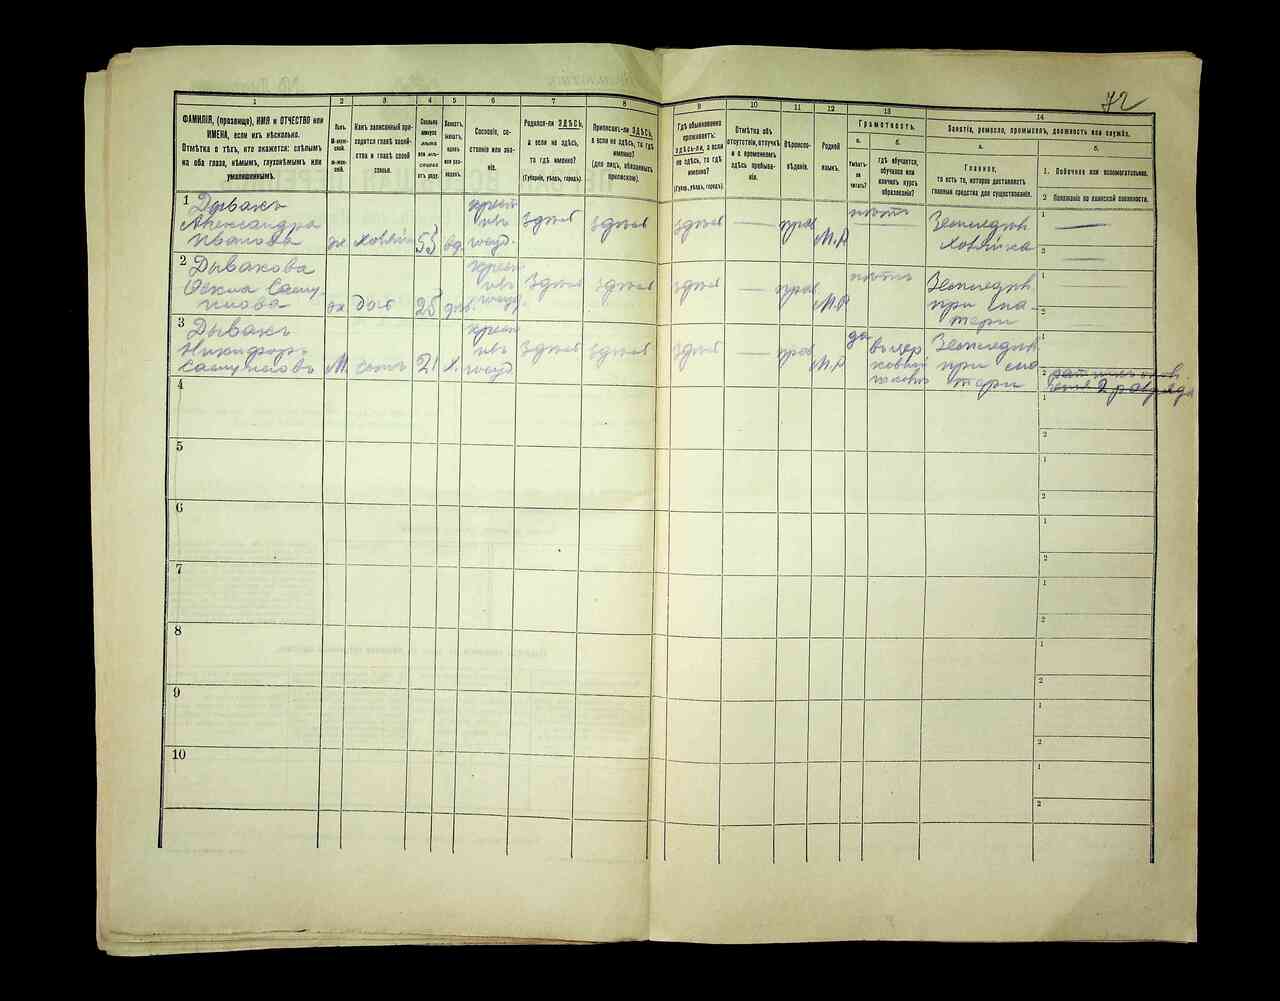 72
1 2 3 4 5 6 7 8 9 10 11 12 13 14
ФАМИЛІЯ, (прозвище), ИМЯ и ОТЧЕСТВО или
ИМЕНА, если ихъ нѣсколько.
Отмѣтка о тѣхъ, кто окажется: слѣпымъ
на оба глаза, нѣмымъ, глухонѣмымъ или
умалишеннымъ.
Полъ.
М-муж-
ской.
Ж-жен-
скій.
Какъ записанный при-
ходится главѣ хозяй-
ства и главѣ своей
семьи.
Сколько
минуло
лѣтъ
Холостъ,
женатъ,
вдовъ
Сословіе, со-
стояніе или зва-
ніе.
Родился-ли ЗДѢСЬ,
а если не здѣсь,
то гдѣ именно?
(Губернія, уѣздъ, городъ).
Приписанъ-ли ЗДѢСЬ,
а если не здѣсь, то гдѣ
именно?
(для лицъ, обязанныхъ
припискою).
Гдѣ обыкновенно
проживаетъ:
ЗДѢСЬ-ЛИ, а если
не здѣсь, то гдѣ
именно?
(Губерн., уѣздъ, городъ).
Отмѣтка объ
отсутствіи, отлучкѣ
и о временномъ
здѣсь пребыва-
ніи.
Вѣроиспо-
вѣданіе.
Родной
языкъ.
Грамотность.
а. б.
Умѣетъ-
ли
читать?
гдѣ обучается,
обучался или
кончилъ курсъ
образованія?
Занятіе, ремесло, промыселъ, должность или служба.
а. б.
Главное,
то есть то, которое доставляетъ
главныя средства для существованія.
1. Побочное или вспомогательное.
2 Положеніе по воинской повинности.
1 Дывакъ
Александра
Иванова
ж хозяйка 53 вд. крест
изъ
госуд. здѣсь здѣсь здѣсь — прав М.Р нѣтъ Земледѣл
хозяйка
1
2
2 Дывакова
Самуи-
лова
ж дочь 25 дѣв. крест
изъ
госуд. здѣсь здѣсь здѣсь — прав М.Р нѣтъ Земледѣл
при ма-
тери
1
2
3 Дывакъ
Никифоръ
Самуиловъ
М. сынъ 21 х. крест
изъ
госуд. здѣсь здѣсь здѣсь — прав М.Р да Земледѣл
при ма
тери
1
2 2 разряда
4 1
2
5 1
2
6 1
2
7 1
2
8 1
2
9 1
2
10 1
2